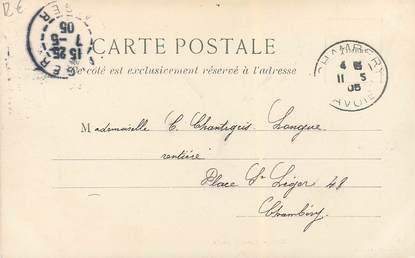 12 €
ALGER
15 25
7 - 5
05
CARTE POSTALE
Ce côté est exclusivement réservé à l'adresse
CHAMBERY
4
11 5
05
SAVOIE
Mademoiselle C. Chantigris Langue
rentière
Place St Léger 48
Chambéry